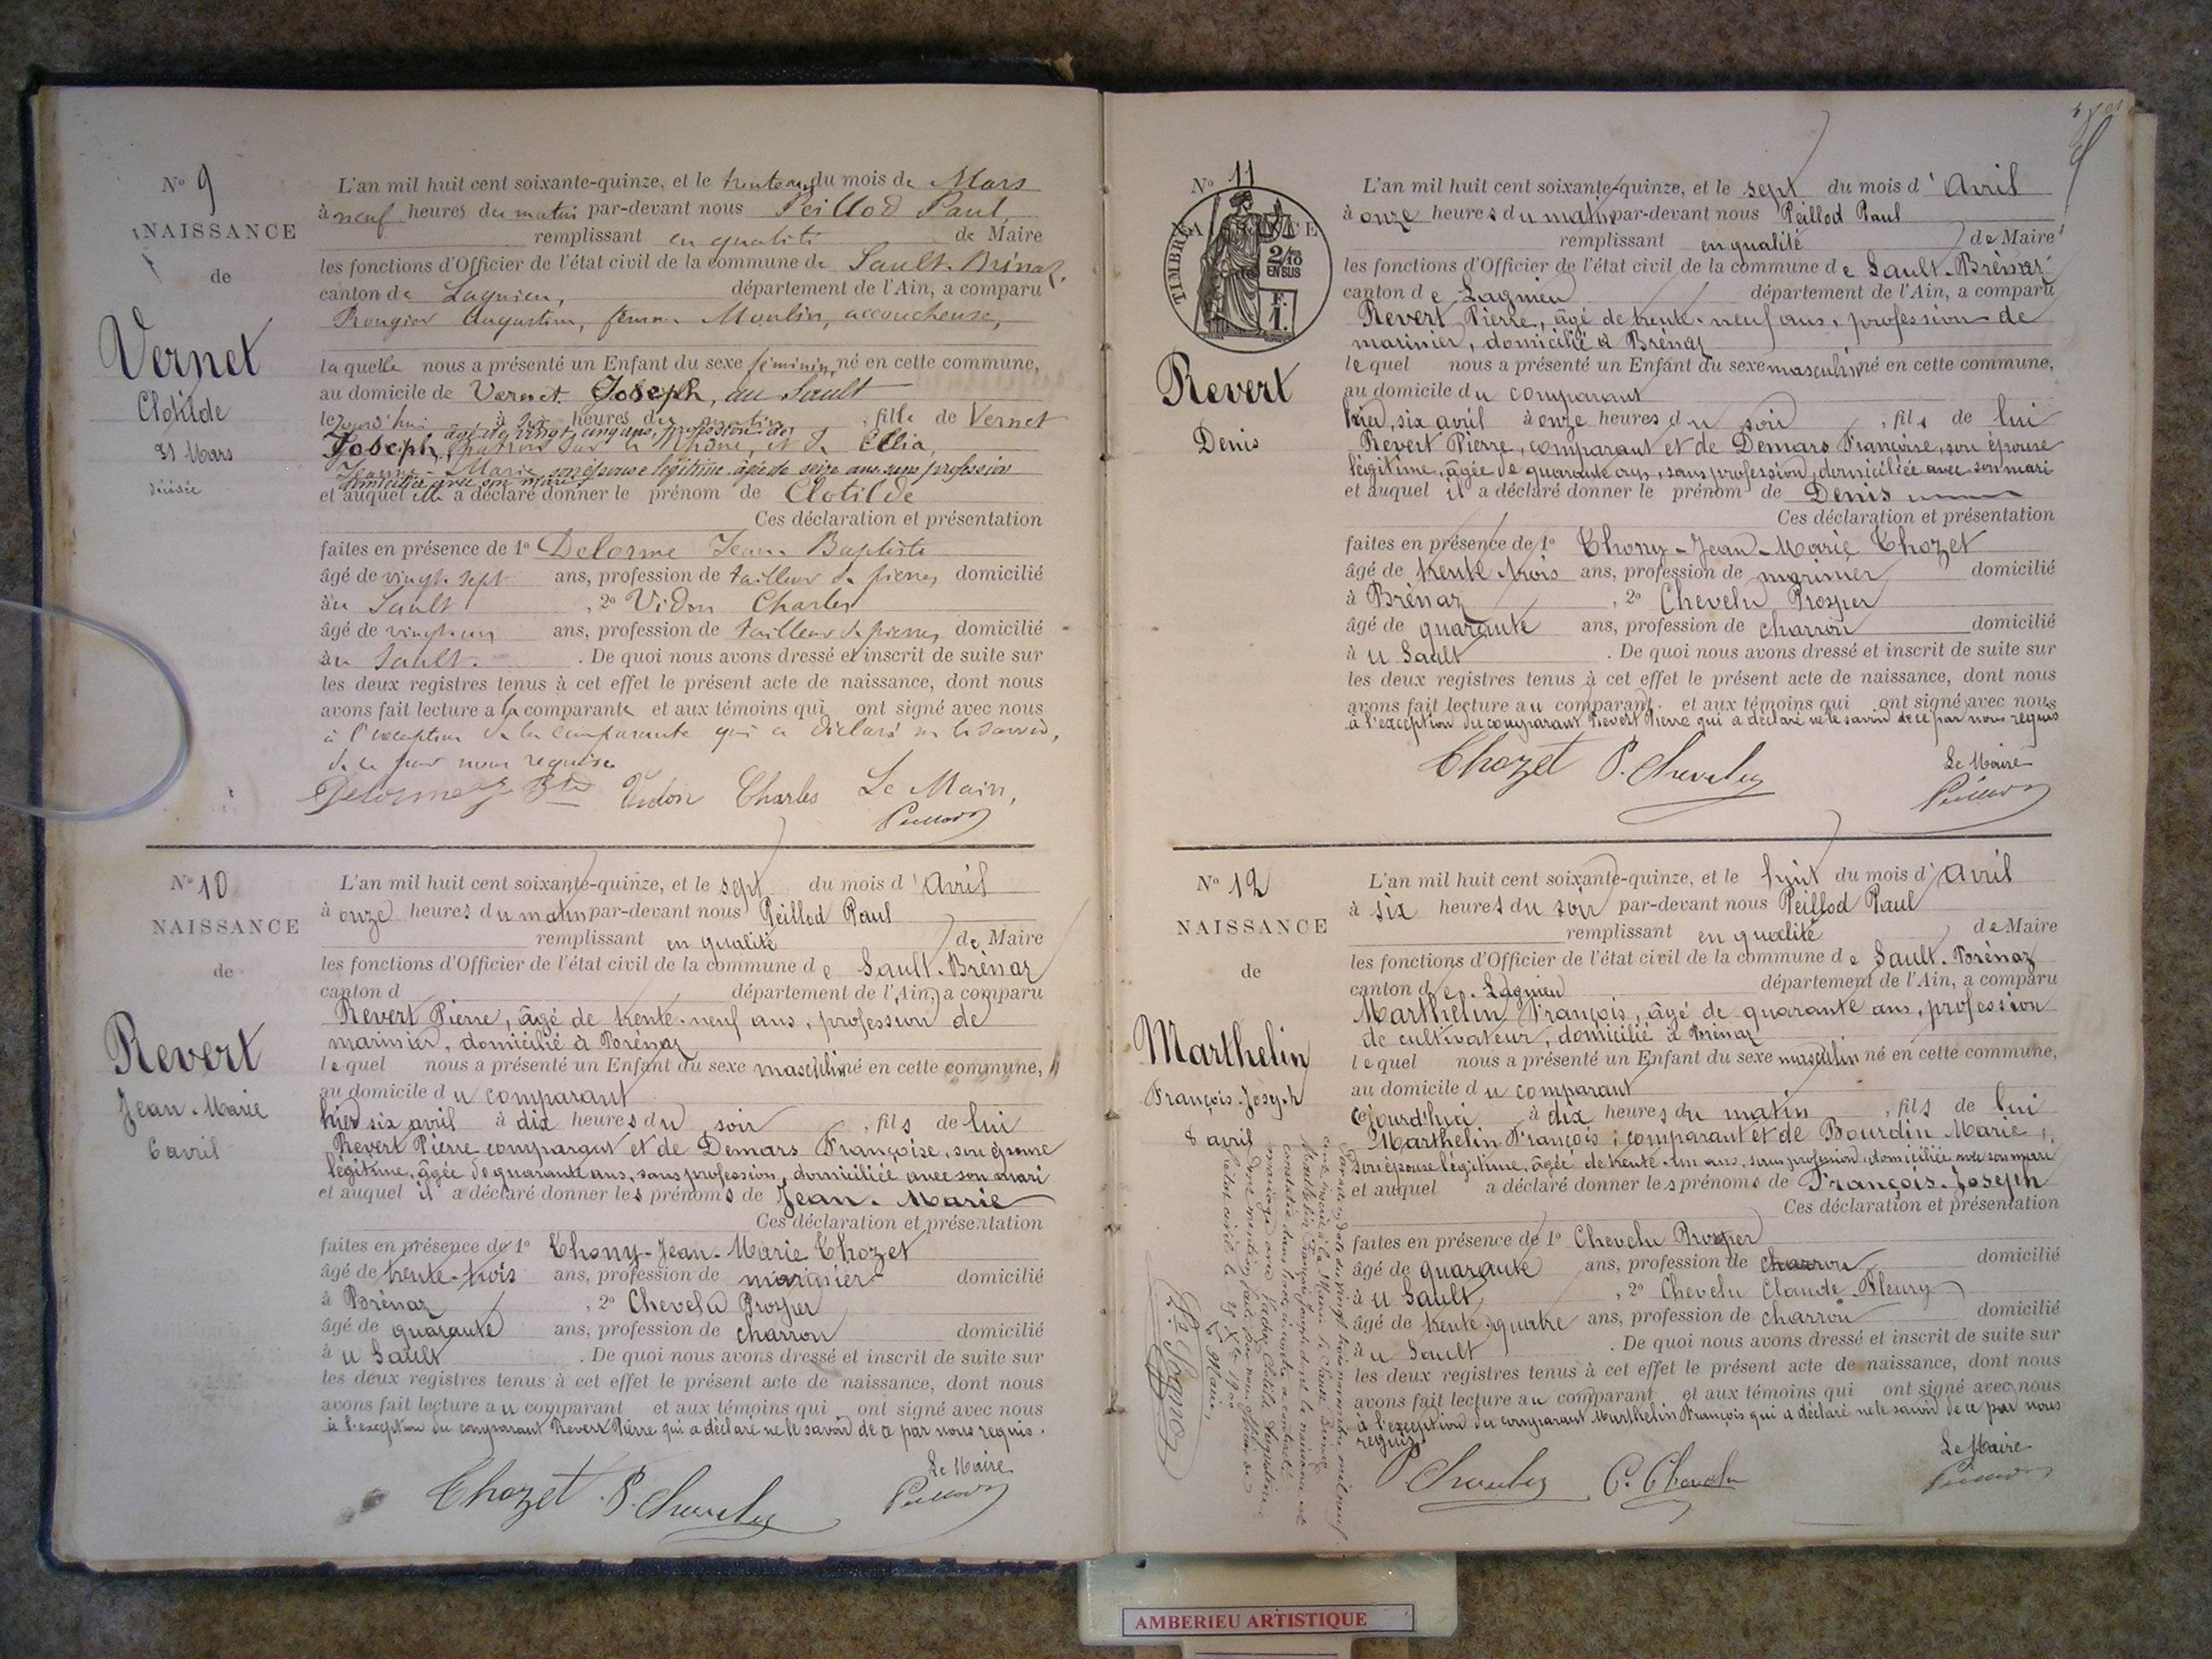 N° 9
NAISSANCE
de
Vernet
Clotilde
31 Mars
L'an mil huit cent soixante-quinze, et le trente un du mois de Mars
à neuf heures du matin par-devant nous Peillod Paul,
remplissant en qualité de Maire
les fonctions d'Officier de l'état civil de la commune de Sault-Brénaz,
canton de Lagnieu, département de l'Ain, a comparu
Rougier Augustine, femme Moulin, accoucheuse,
laquelle nous a présenté un Enfant du sexe féminin, né en cette commune,
au domicile de Vernet Joseph, au Sault
le jourd'hui à six heures du matin, fille de Vernet
âgé de vingt cinq ans, profession de
Joseph, patron sur le Rhône, et de Ellia,
Jeanne-Marie, son épouse légitime âgée de seize ans sans profession
domiciliée avec son mari
et auquel elle a déclaré donner le prénom de Clotilde
Ces déclaration et présentation
faites en présence de 1° Delorme Jean Baptiste
âgé de vingt sept ans, profession de tailleur de pierres, domicilié
au Sault, 2° Vidon Charles
âgé de vingt un ans, profession de tailleur de pierres, domicilié
au Sault. De quoi nous avons dressé et inscrit de suite sur
les deux registres tenus à cet effet le présent acte de naissance, dont nous
avons fait lecture a la comparante et aux témoins qui ont signé avec nous
à l'exception de la comparante qui a déclaré ne le savoir,
de ce par nous requise
Vidon Charles Le Maire,
Peillod
N° 10
NAISSANCE
de
Revert
Jean-Marie
6 avril
L'an mil huit cent soixante-quinze, et le sept du mois d'Avril
à onze heures du matin par-devant nous Peillod Paul
remplissant en qualité de Maire
les fonctions d'Officier de l'état civil de la commune de Sault-Brénaz
canton d département de l'Ain, a comparu
Revert Pierre, âgé de trente-neuf ans, profession de
marinier, domicilié à Brénaz
lequel nous a présenté un Enfant du sexe masculin né en cette commune,
au domicile du comparant
hier six avril à dix heures du soir, fils de lui
Revert Pierre comparant et de Demars Françoise, son épouse
légitime, âgée de quarante ans, sans profession, domiciliée avec son mari
et auquel il a déclaré donner les prénoms de Jean-Marie
Ces déclaration et présentation
faites en présence de 1° Thony-Jean-Marie Chozet
âgé de trente-trois ans, profession de marinier domicilié
à Brénaz, 2° Chevelu Prosper
âgé de quarante ans, profession de charron domicilié
au Sault. De quoi nous avons dressé et inscrit de suite sur
les deux registres tenus à cet effet le présent acte de naissance, dont nous
avons fait lecture au comparant et aux témoins qui ont signé avec nous
à l'exception du comparant Revert Pierre qui a déclaré ne le savoir de ce par nous requis.
Le Maire
Chozet P. Chevelu Peillod
N° 11
TIMBRE
2/10
EN SUS
F.
1.
Revert
Denis
L'an mil huit cent soixante-quinze, et le sept du mois d'Avril
à onze heures du matin par-devant nous Peillod Paul
remplissant en qualité de Maire
les fonctions d'Officier de l'état civil de la commune de Sault-Brénaz
canton de Lagnieu département de l'Ain, a comparu
Revert Pierre, âgé de trente-neuf ans, profession de
marinier, domicilié à Brénaz
lequel nous a présenté un Enfant du sexe masculin né en cette commune,
au domicile du comparant
hier, six avril à onze heures du soir, fils de lui
Revert Pierre, comparant et de Demars Françoise, son épouse
légitime, âgée de quarante ans, sans profession, domiciliée avec son mari
et auquel il a déclaré donner le prénom de Denis
Ces déclaration et présentation
faites en présence de 1° Thony-Jean-Marie Chozet
âgé de trente-trois ans, profession de marinier domicilié
à Brénaz, 2° Chevelu Prosper
âgé de quarante ans, profession de charron domicilié
au Sault. De quoi nous avons dressé et inscrit de suite sur
les deux registres tenus à cet effet le présent acte de naissance, dont nous
avons fait lecture au comparant et aux témoins qui ont signé avec nous
à l'exception du comparant Revert Pierre qui a déclaré ne le savoir de ce par nous requis
Le Maire
Chozet P. Chevelu Peillod
N° 12
NAISSANCE
de
Marthelin
François-Joseph
8 avril
L'an mil huit cent soixante-quinze, et le huit du mois d'Avril
à six heures du soir par-devant nous Peillod Paul
remplissant en qualité de Maire
les fonctions d'Officier de l'état civil de la commune de Sault-Brénaz
canton de Lagnieu département de l'Ain, a comparu
Marthelin François, âgé de quarante ans, profession
de cultivateur, domicilié à Brénaz
lequel nous a présenté un Enfant du sexe masculin né en cette commune,
au domicile du comparant
cejourd'hui à dix heures du matin, fils de lui
Marthelin François, comparant et de Bourdin Marie,
son épouse légitime, âgée de trente-un ans, sans profession, domiciliée avec son mari
et auquel a déclaré donner les prénoms de François-Joseph
Ces déclaration et présentation
faites en présence de 1° Chevelu Prosper
âgé de quarante ans, profession de charron domicilié
au Sault, 2° Chevelu Claude Fleury
âgé de trente-quatre ans, profession de charron domicilié
au Sault. De quoi nous avons dressé et inscrit de suite sur
les deux registres tenus à cet effet le présent acte de naissance, dont nous
avons fait lecture au comparant et aux témoins qui ont signé avec nous
à l'exception du comparant Marthelin François qui a déclaré ne le savoir de ce par nous
requis
Le Maire
P. Chevelu C. Chevelu Peillod
AMBERIEU ARTISTIQUE